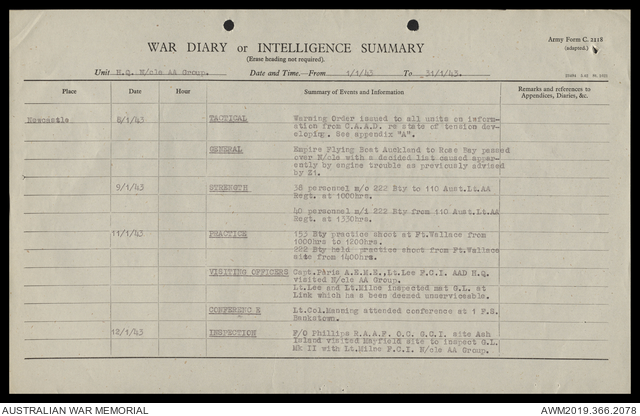 Army Form C. 2118
(adapted.)
WAR DIARY or INTELLIGENCE SUMMARY
(Erase heading not required).
Unit H.Q. N/cle AA Group. Date and Time.—From 1/1/43 To 31/1/43.
Place Date Hour Summary of Events and Information Remarks and references to Appendices, Diaries, &c.
Newcastle 8/1/43 TACTICAL Warning Order issued to all units on inform-
ation from C.A.A.D. re state of tension dev-
eloping. See appendix "A".
GENERAL Empire Flying Boat Auckland to Rose Bay passed
over N/cle with a decided list caused appar-
ently by engine trouble as previously advised
by Z1.
9/1/43 STRENGTH 38 personnel m/o 222 Bty to 110 Aust.Lt.AA
Regt. at 1000hrs.
40 personnel m/i 222 Bty from 110 Aust.Lt.AA
Regt. at 1330hrs.
11/1/43 PRACTICE 153 Bty practice shoot at Ft.Wallace from
1000hrs to 1200hrs.
222 Bty held practice shoot from Ft.Wallace
site from 1400hrs.
VISITING OFFICERS Capt.Peris A.E.M.E., Lt.Lee F.C.I. AAD H.Q.
visited N/cle AA Group.
Lt.Lee and Lt.Milne inspected mat G.L. at
Link which has been deemed unserviceable.
CONFERENCE Lt.Col.Manning attended conference at 1 F.S.
Bankstown.
12/1/43 INSPECTION F/O Phillips R.A.A.F. O.C. G.C.I. site Ash
Island visited Mayfield site to inspect G.L.
Mk II with Lt.Milne F.C.I. N/cle AA Group.
AUSTRALIAN WAR MEMORIAL AWM2019.366.2078